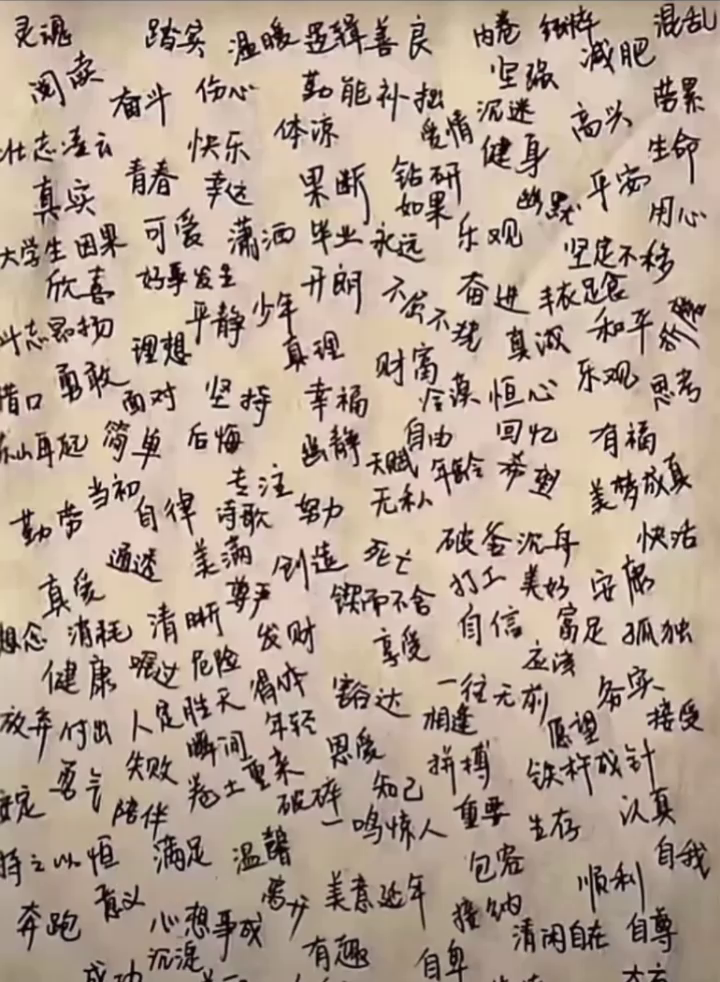 灵魂 踏实 温暖 逻辑 善良 内卷 精粹 混乱
阅读 奋斗 伤心 勤能补拙 坚强 减肥
壮志凌云 快乐 体谅 爱情 沉迷 高兴 劳累
真实 青春 幸运 果断 钻研 健身 生命
如果 幽默 平安 用心
大学生 因果 可爱 潇洒 毕业 永远 乐观 坚定不移
欣喜 好事发生 开朗 不屈不挠 奋进 丰衣足食
斗志昂扬 平静 少年 真诚 和平
借口 勇敢 理想 真理 财富 冷漠 恒心 乐观 思考
面对 坚持 幸福
东山再起 简单 后悔 幽静 自由 回忆 有福
当初 专注 天赋 年龄 希冀 美梦成真
勤劳 自律 诗歌 努力 无私
通透 美满 创造 死亡 破釜沉舟 快活
真爱 尊严 锲而不舍 打工 美好 安康
想念 消耗 清晰 发财 享受 自信 富足 孤独
健康 嘱过 危险 应该
放弃 付出 人定胜天 得体 豁达 一往无前 务实
年轻 相逢 愿望 接受
安定 勇气 失败 瞬间 恩爱 拼搏 铁杵成针
陪伴 卷土重来 破碎 知己
一鸣惊人 重要 生存 认真
持之以恒 满足 温馨 包容 自我
奔跑 意义 美意延年 接纳 顺利
心想事成 清闲自在 自尊
成功 沉淀 有趣 自卑